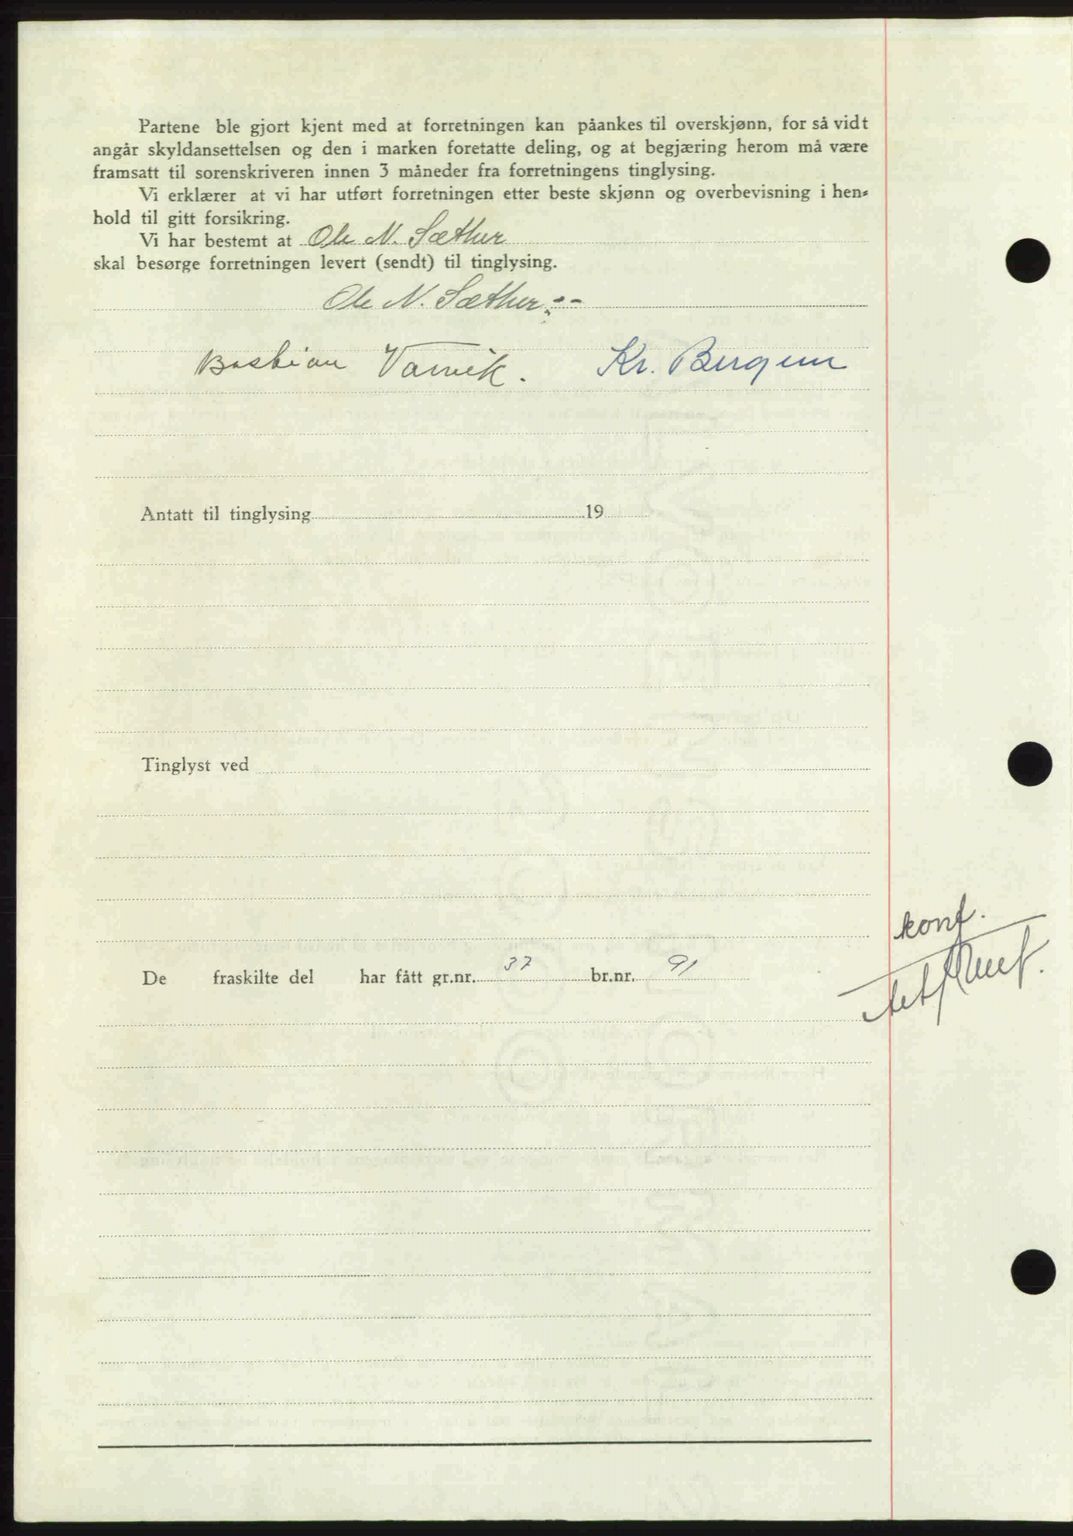 Partene ble gjort kjent med at forretningen kan påankes til overskjønn, for så vidt
angår skyldansettelsen og den i marken foretatte deling, og at begjæring herom må være
framsatt til sorenskriveren innen 3 måneder fra forretningens tinglysing.
Vi erklærer at vi har utført forretningen etter beste skjønn og overbevisning i hen-
hold til gitt forsikring.
Vi har bestemt at Ole N. Sæther
skal besørge forretningen levert (sendt) til tinglysing.
Ole N. Sæther.--
Bastian Varvik. Kr. Bergem
Antatt til tinglysing 19
Tinglyst ved
konf.
De fraskilte del har fått gr.nr. 37 br.nr. 91